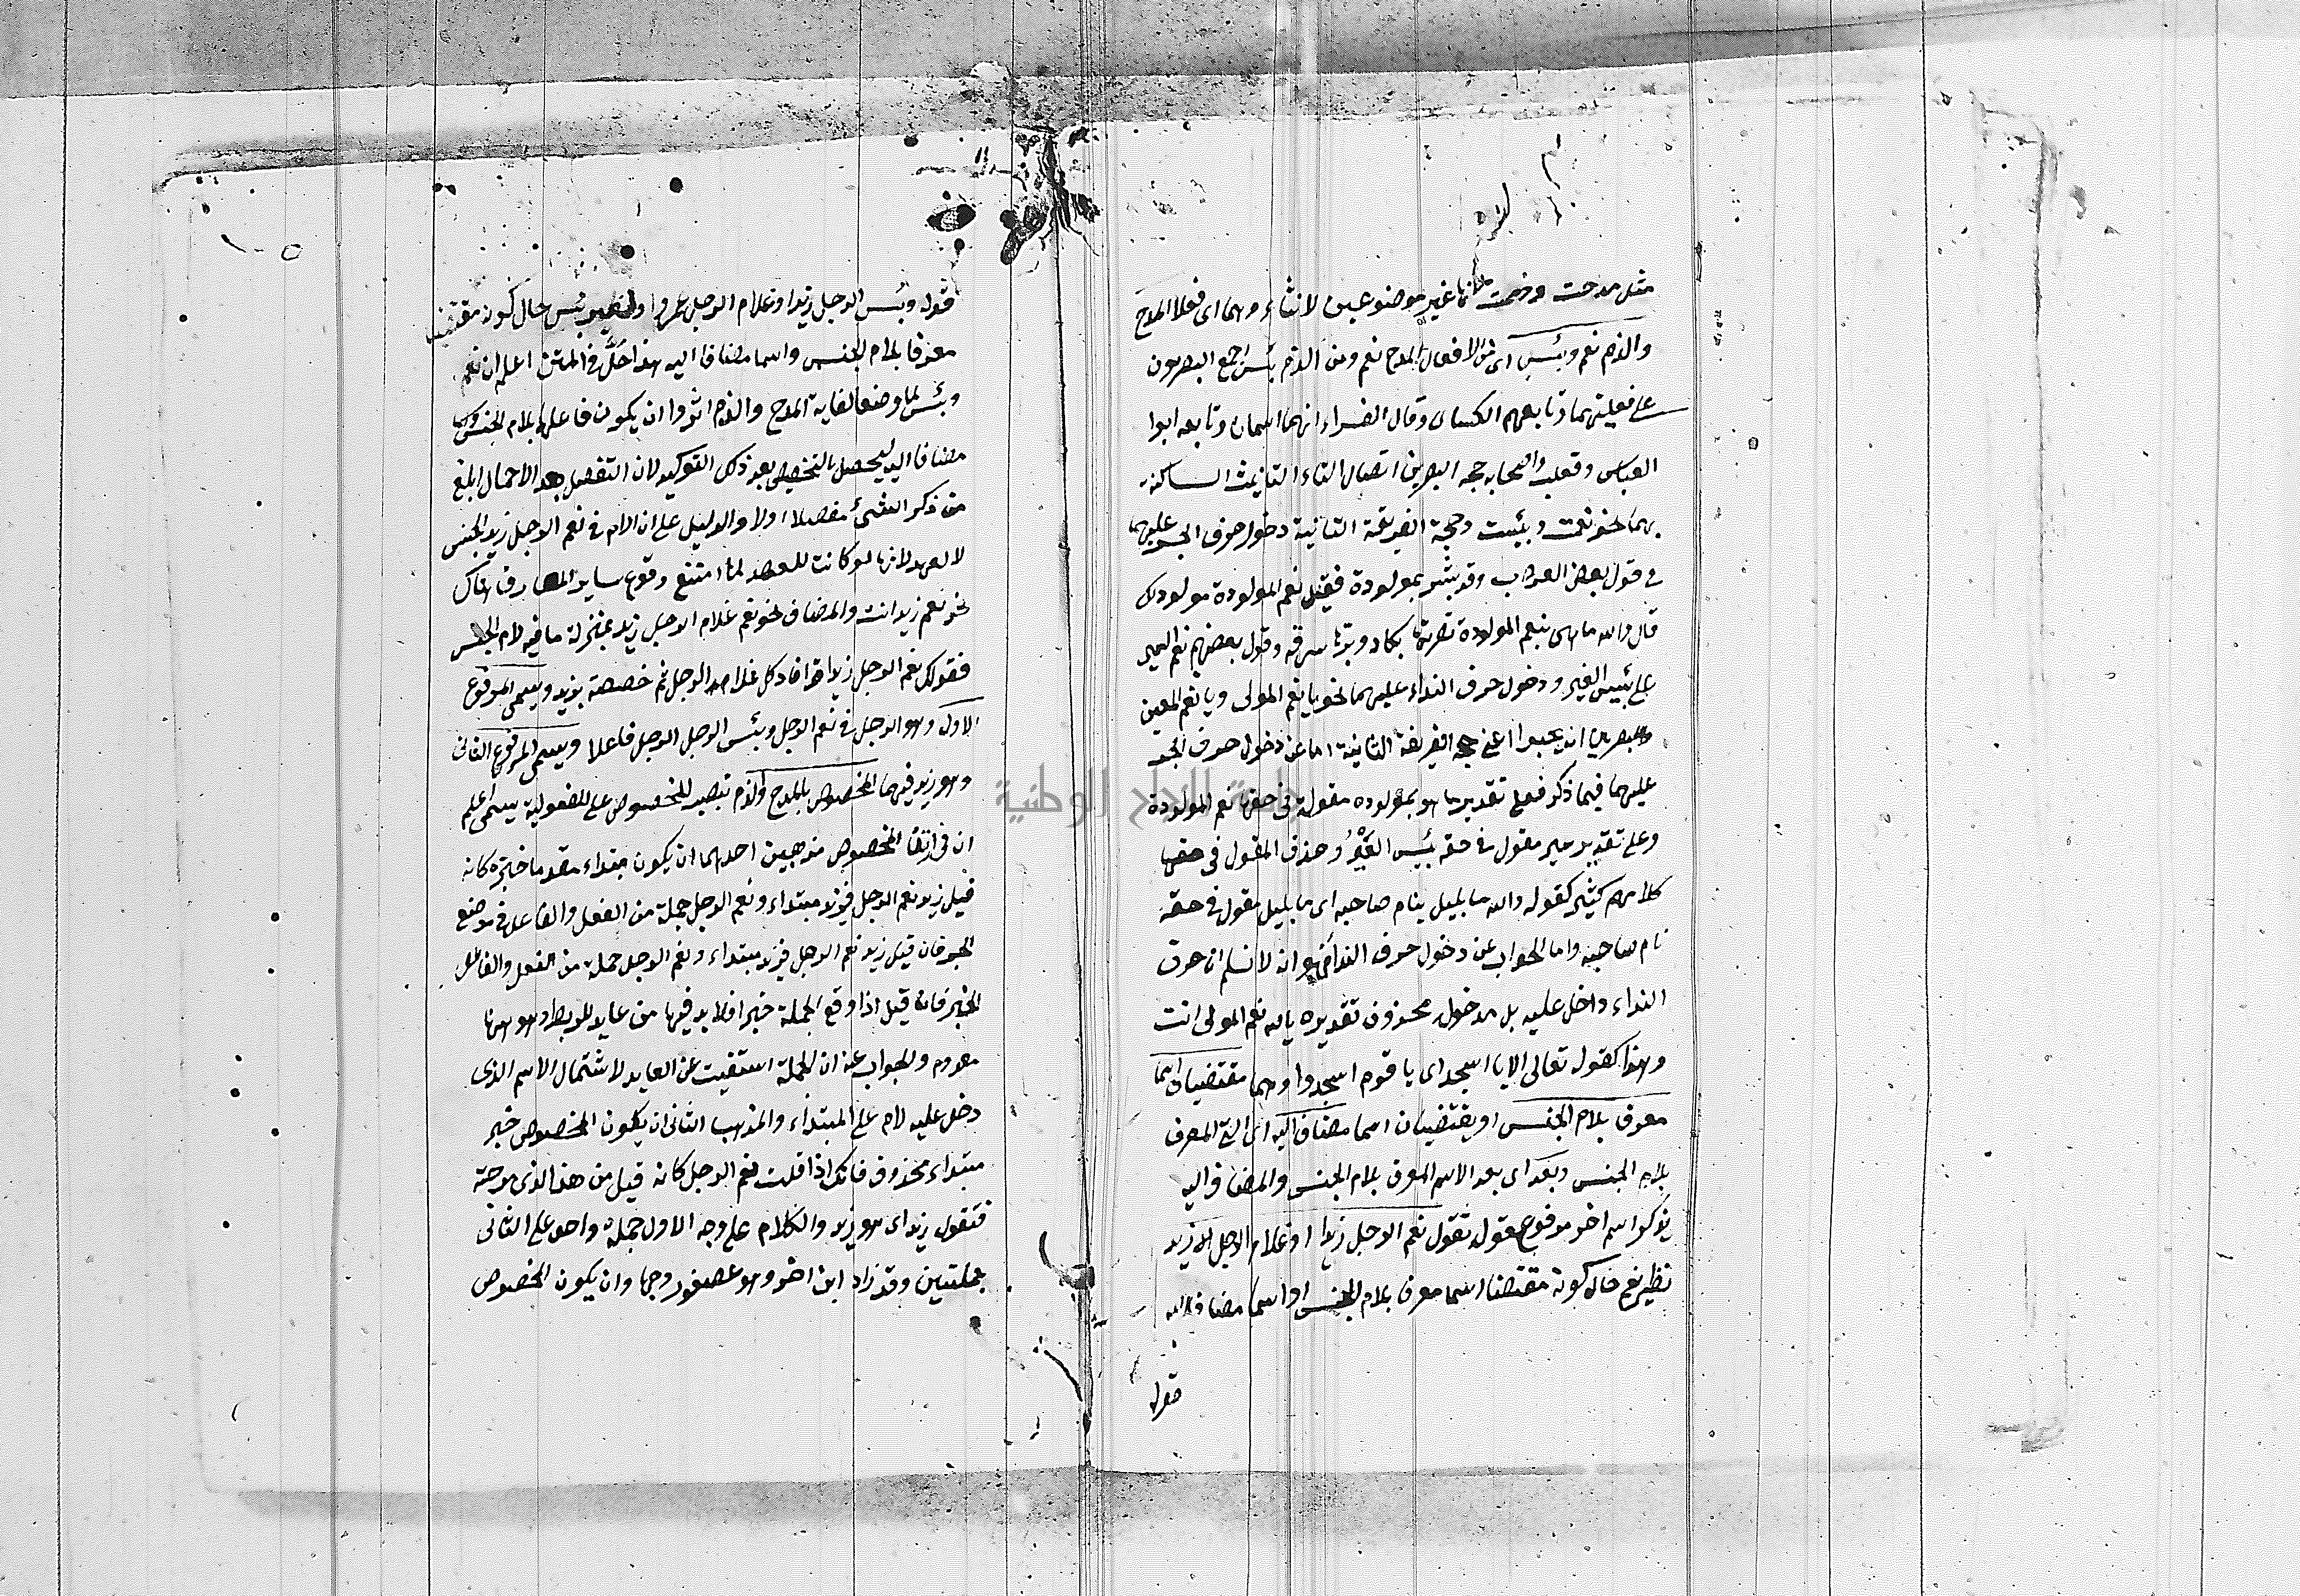 مثل مدحت وذممت فانها غير موضوعين لانشاء وهما اى فعلا المدح
والذم نعم وبئس اى من الافعال المدح نعم ومن الذم بئس اجمع البصريون
على فعليتهما وتابعهم الكساى وقال الفراء انهما اسمان وتابعه ابوا
العباس وثعلب واصحابه حجه البصرين اتصال التاء التانيث الساكنة
بهما نحو نعمت وبئست وحجة الفريقة الثانية دخول حرف الجر عليهما
فى قول بعض العرب وقد بشر بمولودة فقيل نعم المولودة مولودك
قال والله ما هى بنعم المولودة نصرتها بكاء وبرها سرقة وقول بعضهم نعم السير
على بئس العير ودخول حرف النداء عليهما نحو يا نعم المولى ويا نعم المعين
والبصرين ان يجيبوا عن حجه الفريقة الثانية اما عن دخول حرف الجر
عليهما فيما ذكر فعلى تقدير ما هو بمولوده مقولة فى حقها نعم المولودة
وعلى تقدير عير مقول فى حقه بئس العير وحذف المقول فى
كلامهم كثير كقوله والله ما ليل ينام صاحبه اى ما ليل مقول فى حقه
نام صاحبه واما الجواب عن دخول حرف النداء فهو انه لا نسلم ان حرف
النداء داخل عليه بل مدخول محذوف تقديره يا الله نعم المولى انت
وهذا كقوله تعالى الا يا اسجدوا اى يا قوم اسجدوا وهما مقتضيان اسما
معرف بلام الجنس او يقتضيان اسما مضافا اليه اى الى المعرف
بلام الجنس وبعد اى بعد الاسم المعرف بلام الجنس والمضاف اليه
يذكر اسم اخر مرفوع فقوله تقول نعم الرجل زيد او غلام الرجل زيد
نظير نعم حال كونه مقتضيا اسما معرفا بلام الجنس او اسما مضافا اليه
قوله
قوله وبئس الرجل زيد او غلام الرجل عمرو نظير بئس حال كونه مقتضيا
معرفا بلام الجنس واسما مضافا اليه هذا حل فى المتن اعلم ان نعم
وبئس لما وضعا لغاية المدح والذم اثروا ان يكون فاعلهما بلام الجنس
مضافا اليه ليحصل بالتخصيص بعد ذلك التوكيد لان التفصيل بعد الاجمال ابلغ
من ذكر الشئ مفصلا اولا والدليل على ان الام فى نعم الرجل زيد الجنس
لا العهد لانها لو كانت للعهد لما امتنع وقوع ساير المعارف هناك
نحو نعم زيد انت والمضاف نحو نعم غلام الرجل زيد بمنزلة ما فيه لام الجنس
فقولك نعم الرجل زيد افاد كل غلام الرجل ثم خصصته بزيد ويسمى المرفوع
الاول وهو الرجل فى نعم الرجل وبئس الرجل الرجل فاعلا ويسمى المرفوع الثانى
وهو زيد فيهما المخصوص بالمدح والذم للمخصوص على المفعولية يسمى اعلم
ان فى ارتفاع المخصوص مذهبين احدهما ان يكون مبتداء مقدما خبره كانه
قيل زيد نعم الرجل فزيد مبتداء ونعم الرجل جملة من الفعل والفاعل فى موضع
الخبر فان قيل زيد نعم الرجل فزيد مبتداء ونعم الرجل جملة من الفعل والفاعل
الخبر فان قيل اذا وقع الجملة خبرا فلا بد فيها من عايد للربط وهو هنا
معدوم والجواب عنه ان الجملة استغنيت عن العايد لاشتمال الاسم الذى
دخل عليه لام على المبتداء والمذهب الثانى ان يكون المخصوص خبر
مبتداء محذوف فانك اذا قلت نعم الرجل كانه قيل من هذا الذى مدحته
فتقول زيد اى هو زيد والكلام على وجه الاول جملة واحد على الثانى
جملتين وقد زاد ابن اخر وهو عصفور وجها وان يكون المخصوص